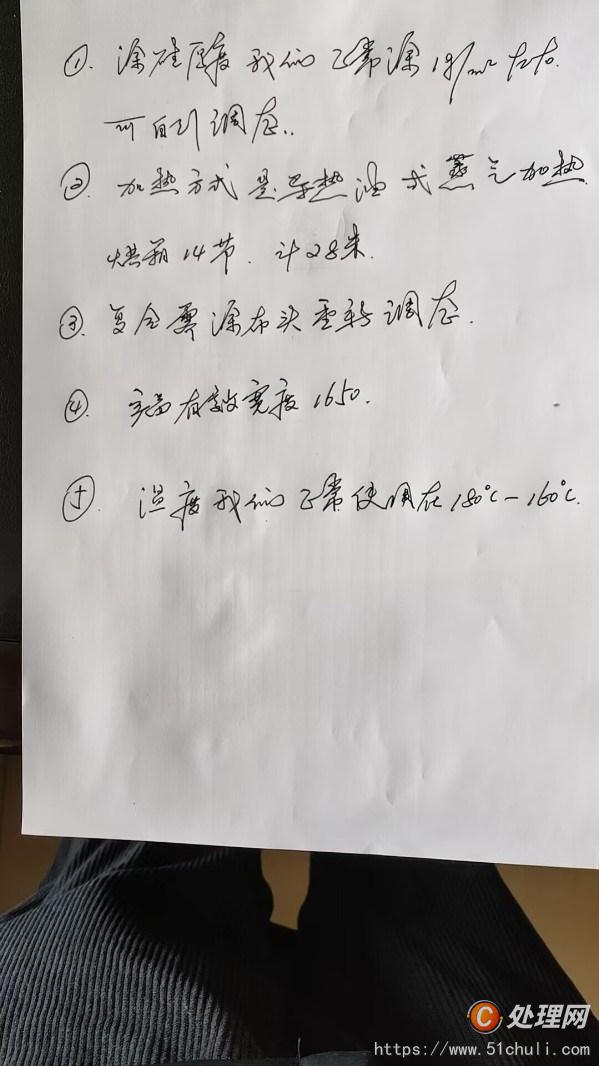 ①. 涂硅厚度我们正常涂1g/m² 左右.
可自行调整..
②. 加热方式是导热油或蒸气加热.
烘箱14节. 计28米.
③. 复合需涂布头重新调整.
④. 有效宽度1650.
⑤. 温度我们正常使用在180℃－160℃.
C 处理网
https://www.51chuli.com